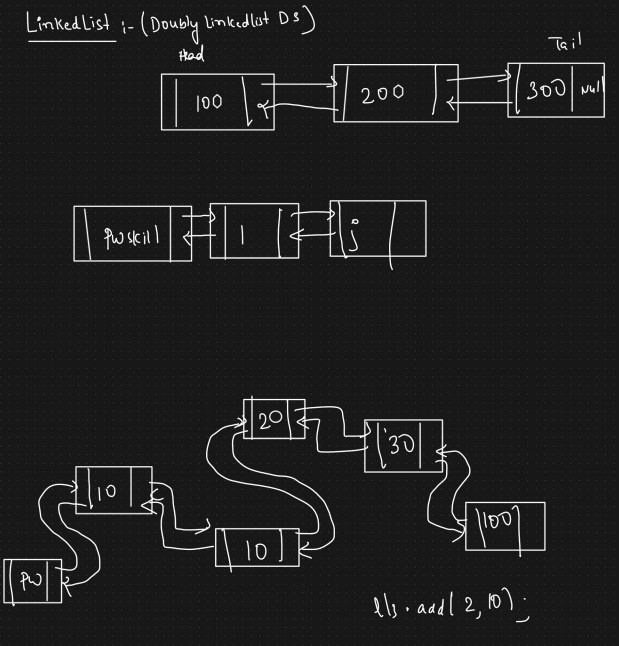 LinkedList :- (Doubly Linkedlist DS)
Head
Tail
100
200
300 Null
Pwskill
1
j
20
30
10
100
10
PW
lls.add(2, 10);